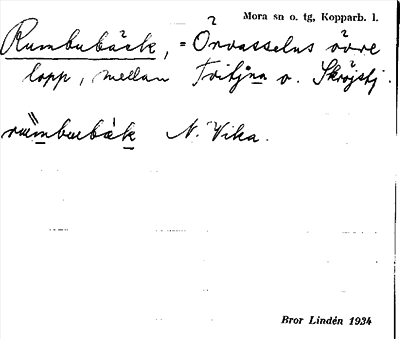 Mora sn o. tg, Kopparb. l.
Rumbubäck, = Örvasselns övre
lopp, mellan Tvitjnn o. Skröjstj.
rumbubäk N. Vika.
Bror Lindén 1934